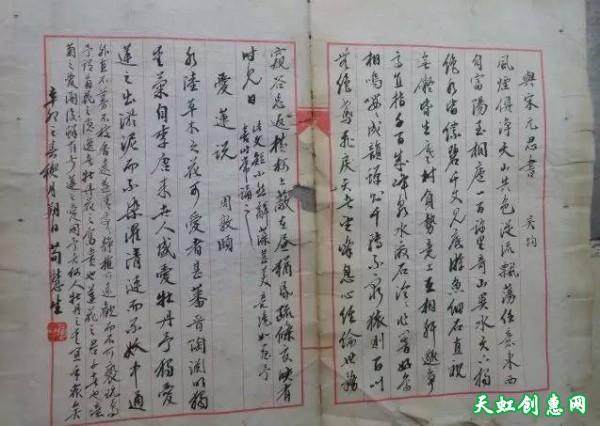 與宋元思書 吴均
風煙俱淨天山共色從流飄蕩任意東西
自富陽至桐廬一百許里奇山異水天下獨
絶水皆縹碧千丈見底游魚細石直視
無礙皆生寒樹負勢競上互相軒邈爭
高直指千百成峰泉水激石泠作響好鳥
相鳴嚶嚶成韻蟬公千轉不窮猿則百叫
無絶鳶飛戾天者望峰息心經綸世務
窺谷忘返橫柯上蔽在晝猶昏疏條交映有
时見日 此文短小然辭藻甚美
幼時常誦之
愛蓮説 周敦頤
水陸草木之花可愛者甚蕃晉陶淵明獨
愛菊自李唐來世人盛愛牡丹予獨愛
蓮之出淤泥而不染濯清漣而不妖中通
外直不蔓不枝香遠益清亭亭淨植可遠觀而不可褻玩焉
予謂菊花之隱逸者牡丹花之富貴也蓮花之君子者也噫
菊之愛陶後鮮有蓮之愛同予者何人牡丹之愛宜乎衆矣
辛卯之春月朔日 荀慧生
天虹创惠网